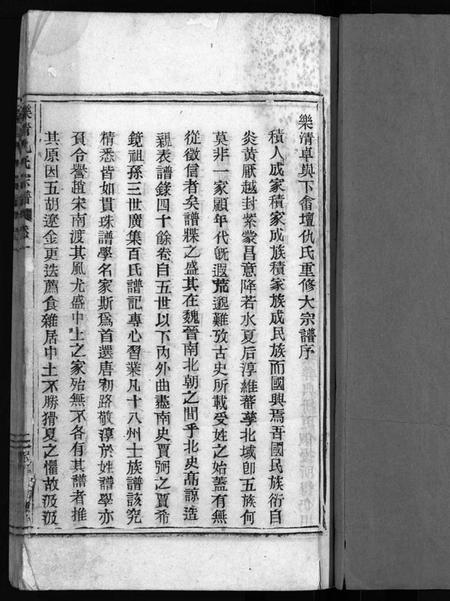 樂清卓與下畲壇仇氏重修大宗譜序
積人成家積家成族積家族成民族而國興焉吾國民族衍自
炎黃厥越封紫蒙昌意降若水夏后淳維蕃孳北域卽五族何
莫非一家顧年代旣遐荒邈難攷古史所載受姓之始蓋有無
從徵信者矣譜牒之盛其在魏晉南北朝之間乎北史高諒造
親表譜錄四十餘卷自五世以下內外曲盡南史賈弼之賈希
鏡祖孫三世廣集百氏譜記專心習業凡十八州士族譜該究
精悉皆如貫珠譜學名家斯爲首選唐初路敬淳於姓譜學亦
頁令譽趙宋南渡其風尤盛中土之家殆無不各有其譜者推
其原因五胡遼金更迭薦食雜居中土不勝猾夏之懼故汲汲
樂清仇氏宗譜